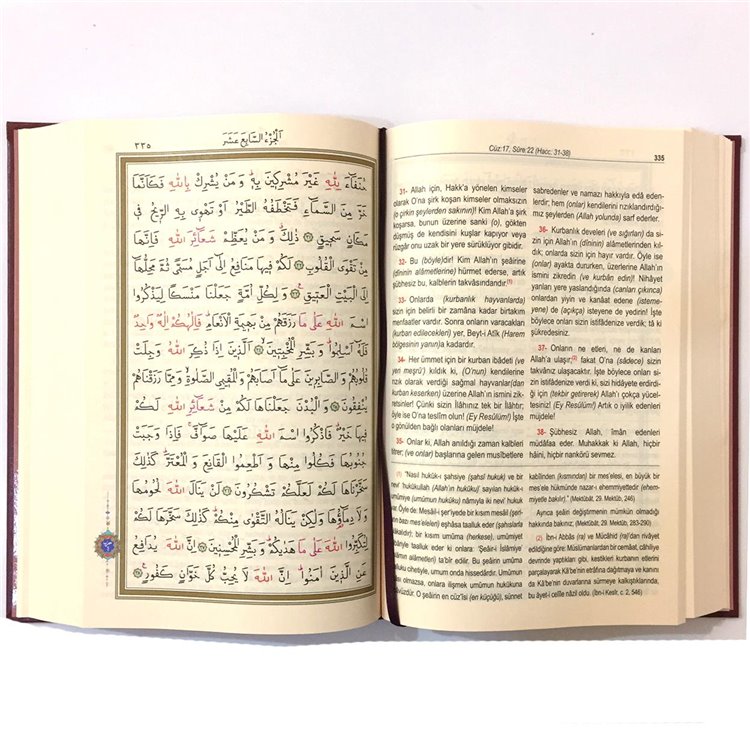 ٣٣٥
اَلْجُزْءُ السَّابِعَ عَشَرَ
حُنَفَٓاءَ لِلّٰهِ غَيْرَ مُشْرِك۪ينَ بِه۪ۜ وَمَنْ يُشْرِكْ بِاللّٰهِ فَكَاَنَّمَا
خَرَّ مِنَ السَّمَٓاءِ فَتَخْطَفُهُ الطَّيْرُ اَوْ تَهْو۪ي بِهِ الرّ۪يحُ ف۪ي
مَكَانٍ سَح۪يقٍ ۝ ذٰلِكَۗ وَمَنْ يُعَظِّمْ شَعَٓائِرَ اللّٰهِ فَاِنَّهَا
مِنْ تَقْوَى الْقُلُوبِ ۝ لَكُمْ ف۪يهَا مَنَافِعُ اِلٰٓى اَجَلٍ مُسَمًّى ثُمَّ مَحِلُّهَٓا
اِلَى الْبَيْتِ الْعَت۪يقِ۟ ۝ وَلِكُلِّ اُمَّةٍ جَعَلْنَا مَنْسَكًا لِيَذْكُرُوا
اسْمَ اللّٰهِ عَلٰى مَا رَزَقَهُمْ مِنْ بَه۪يمَةِ الْاَنْعَامِۜ فَاِلٰهُكُمْ اِلٰهٌ وَاحِدٌ
فَلَهُٓ اَسْلِمُواۜ وَبَشِّرِ الْمُخْبِت۪ينَۙ ۝ اَلَّذ۪ينَ اِذَا ذُكِرَ اللّٰهُ وَجِلَتْ
قُلُوبُهُمْ وَالصَّابِر۪ينَ عَلٰى مَٓا اَصَابَهُمْ وَالْمُق۪يمِي الصَّلٰوةِۙ وَمِمَّا رَزَقْنَاهُمْ
يُنْفِقُونَ ۝ وَالْبُدْنَ جَعَلْنَاهَا لَكُمْ مِنْ شَعَٓائِرِ اللّٰهِ لَكُمْ
ف۪يهَا خَيْرٌۗ فَاذْكُرُوا اسْمَ اللّٰهِ عَلَيْهَا صَوَٓافَّۚ فَاِذَا وَجَبَتْ
جُنُوبُهَا فَكُلُوا مِنْهَا وَاَطْعِمُوا الْقَانِعَ وَالْمُعْتَرَّۜ كَذٰلِكَ
سَخَّرْنَاهَا لَكُمْ لَعَلَّكُمْ تَشْكُرُونَ ۝ لَنْ يَنَالَ اللّٰهَ لُحُومُهَا
وَلَا دِمَٓاؤُ۬هَا وَلٰكِنْ يَنَالُهُ التَّقْوٰى مِنْكُمْۜ كَذٰلِكَ سَخَّرَهَا لَكُمْ
لِتُكَبِّرُوا اللّٰهَ عَلٰى مَا هَدٰيكُمْۜ وَبَشِّرِ الْمُحْسِن۪ينَ ۝ اِنَّ اللّٰهَ يُدَافِعُ
عَنِ الَّذ۪ينَ اٰمَنُواۜ اِنَّ اللّٰهَ لَا يُحِبُّ كُلَّ خَوَّانٍ كَفُورٍ۟ ۝
Cüz:17, Sûre:22 (Hacc: 31-38)
335
31- Allah için, Hakk'a yönelen kimseler
olarak O'na şirk koşan kimseler olmaksızın
(o çirkin şeylerden sakının)! Kim Allah'a şirk
koşarsa, bunun üzerine sanki (o), gökten
düşmüş de kendisini kuşlar kapıyor veya
rüzgâr onu uzak bir yere sürüklüyor gibidir.
32- Bu (böyle)dir! Kim Allah'ın şeâirine
(dîninin alâmetlerine) hürmet ederse, artık
şübhesiz bu, kalblerin takvâsındandır.(1)
33- Onlarda (kurbanlık hayvanlarda)
sizin için belirli bir zamâna kadar birtakım
menfaatler vardır. Sonra onların varacakları
(kurban edilecekleri) yer, Beyt-i Atîk (Harem
bölgesinin yanın)a kadardır.
34- Her ümmet için bir kurban ibâdeti (ve
yeri meşrû') kıldık ki, (O'nun) kendilerine
rızık olarak verdiği sağmal hayvanlar(dan
kurban keserken) üzerine Allah'ın ismini zikr-
etsinler! Çünki sizin İlâhınız tek bir İlâhtır;
öyle ise O'na teslîm olun! (Ey Resûlüm!) İşte
o gönülden bağlı olanları müjdele!
35- Onlar ki, Allah anıldığı zaman kalbleri
titrer; (ve onlar) başlarına gelen musîbetlere
sabredenler ve namazı hakkıyla edâ eden-
lerdir; hem (onlar) kendilerini rızıklandırdığı-
mız şeylerden (Allah yolunda) sarf ederler.
36- Kurbanlık develeri (ve sığırları) da si-
zin için Allah'ın (dîninin) alâmetlerinden kıl-
dık; onlarda sizin için hayır vardır. Öyle ise
(onlar) ayakta dururken, üzerlerine Allah'ın
ismini zikredin (ve kurban edin)! Nihâyet
yanları yere yaslandığında (canları çıkınca)
onlardan yiyin ve kanâat edene (isteme-
yene) de (açıkça) isteyene de yedirin! İşte
böylece onları sizin istifâdenize verdik; tâ ki
şükredesiniz.
37- Onların ne etleri, ne de kanları
Allah'a ulaşır,(2) fakat O'na (sâdece) sizin
takvânız ulaşacaktır. İşte böylece onları si-
zin istifâdenize verdi ki, sizi hidâyete erdirdi-
ği için (tekbîr getirerek) Allah'ı çokça yücel-
tesiniz! (Ey Resûlüm!) Artık o iyilik edenleri
müjdele!
38- Şübhesiz Allah, îmân edenleri
müdâfaa eder. Muhakkak ki Allah, hiçbir
hâini, hiçbir nankörü sevmez.
(1) "Nasıl hukūk-ı şahsiye (şahsî hukuk) ve bir
nevi' hukūkullah (Allah'ın hukūku) sayılan hukūk-ı
umûmiye (umûmun hukūku) nâmıyla iki nevi' hukuk
var. Öyle de: Mesâil-i şer'iyede bir kısım mesâil (şerî-
atin bazı mes'eleleri) eşhâsa taalluk eder (şahıslarla
alâkadardır); bir kısım umûma, umûmiyet
itibâriyle taalluk eder ki onlara: 'Şeâir-i İslâmiye
(İslâmın alâmetleri)' ta'bîr edilir. Bu şeâirin umûma
taalluku cihetiyle, umum onda hissedârdır. Umûmun
rızâsı olmazsa, onlara ilişmek umûmun hukūkuna
tecâvüzdür. O şeâirin en cüz'îsi (en küçüğü), sünnet
kabîlinden (kısmından) bir mes'elesi, en büyük bir
mes'ele hükmünde nazar-ı ehemmiyettedir (ehem-
miyetle bakılır)." (Mektûbât, 29. Mektûb, 246)
Ayrıca şeâiri değiştirmenin mümkün olmadığı
hakkında bakınız, (Mektûbât, 29. Mektûb, 283-290)
(2) İbn-i Abbâs (ra) ve Mücâhid (ra)'dan rivâyet
edildiğine göre: Müslümanlardan bir cemâat, câhiliye
devrinde yaptıkları gibi, kestikleri kurbanın etlerini
parçalayarak Kâ'be'nin etrâfına dağıtmaya ve kanını
da Kâ'be'nin duvarlarına sürmeye kalkıştıklarında,
bu âyet-i celîle nâzil oldu. (İbn-i Kesîr, c. 2, 546)